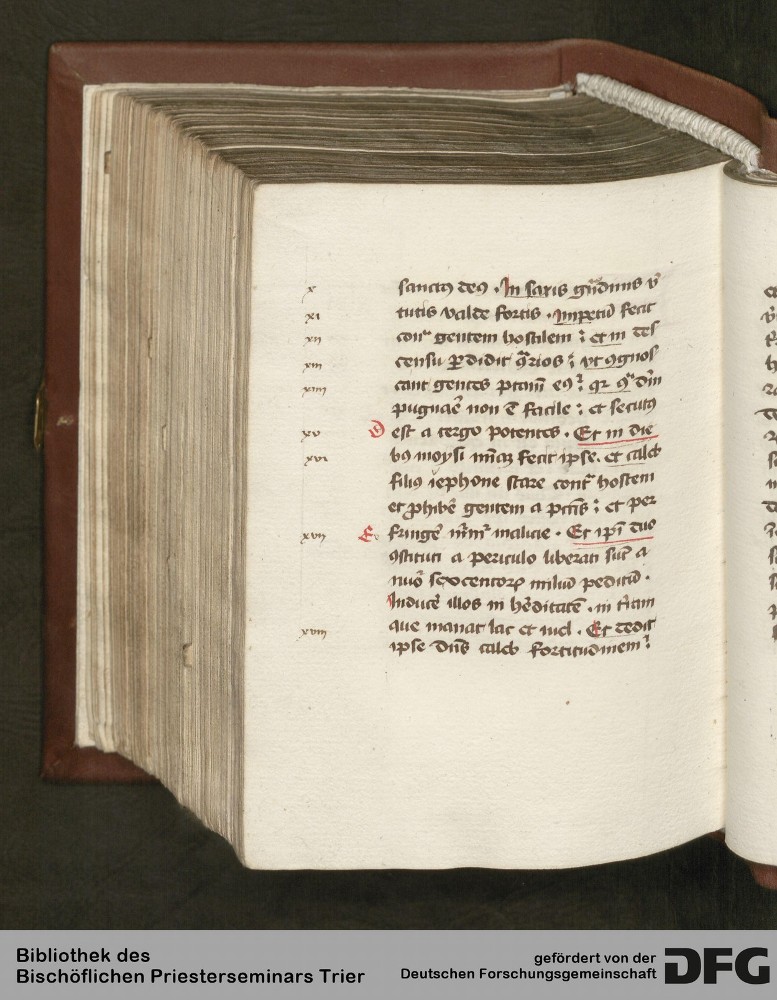 x sanctus deus . In saxis grandinis vir
xi tutis valde fortis . Impetum fecit
xii contra gentem hostilem : et in des
xiii censu perdidit contrarios : ut cognos
xiiii cant gentes potentiam eius : quia contra dominum
pugnare non est facile : et secutus
xv est a tergo potentes . Et in die
xvi bus moysi misericordiam fecit ipse . et caleb
filius iephone stare contra hostem
et prohibere gentem a peccatis : et per
xvii fringere murmur malicie . Et ipsi duo
constituti a periculo liberati sunt a
numero sexcentorum milium peditum .
Inducere illos in hereditatem . in terram
que manat lac et mel .
xviii Et dedit
ipse dominus caleb fortitudinem :
Bibliothek des
Bischöflichen Priesterseminars Trier
gefördert von der
Deutschen Forschungsgemeinschaft
DFG